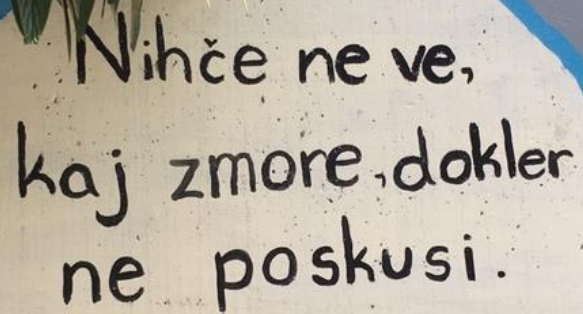 Nihče ne ve,
kaj zmore, dokler
ne poskusi.